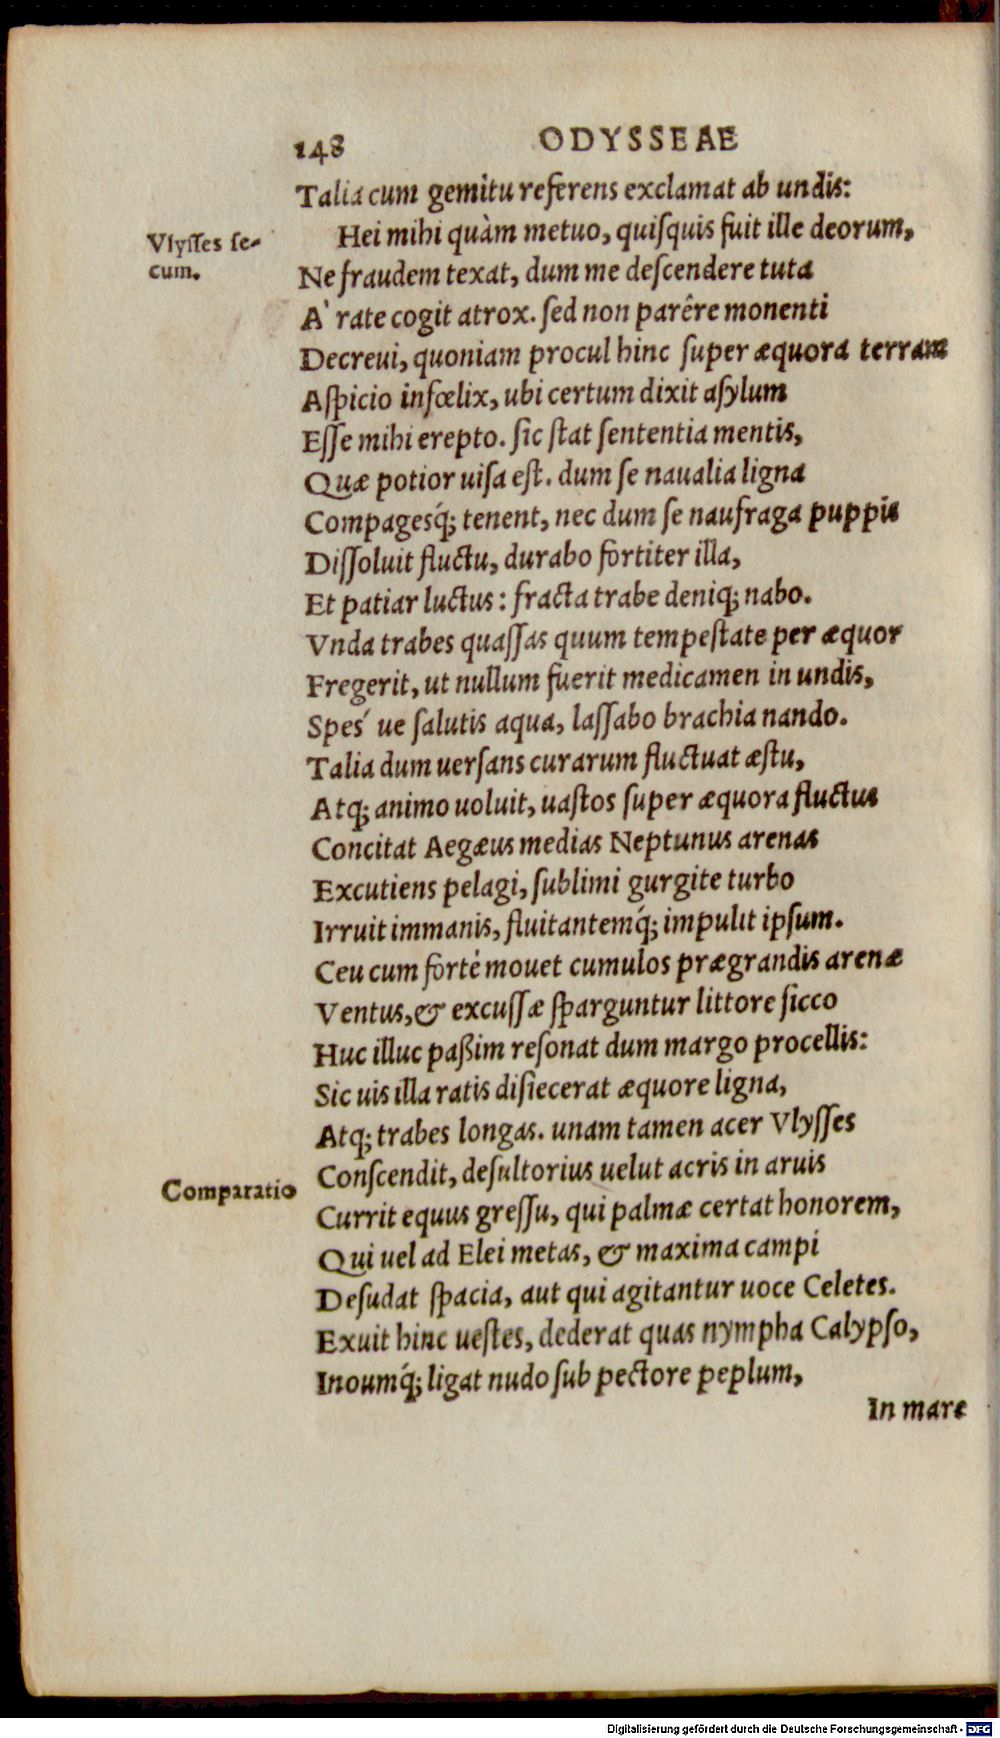 148 ODYSSEAE
Talia cum gemitu referens exclamat ab undis:
Vlyſſes ſe-
cum.
Hei mihi quàm metuo, quiſquis fuit ille deorum,
Ne fraudem texat, dum me deſcendere tuta
A` rate cogit atrox. ſed non parêre monenti
Decreui, quoniam procul hinc ſuper æquora terram
Aſpicio infœlix, ubi certum dixit aſylum
Eſſe mihi erepto. ſic ſtat ſententia mentis,
Quæ potior uiſa eſt. dum ſe naualia ligna
Compagesq́; tenent, nec dum ſe naufraga puppis
Diſſoluit fluctu, durabo fortiter illa,
Et patiar luctus: fracta trabe deniq; nabo.
Vnda trabes quaſſas quum tempeſtate per æquor
Fregerit, ut nullum fuerit medicamen in undis,
Spes´ ue ſalutis aqua, laſſabo brachia nando.
Talia dum uerſans curarum fluctuat æſtu,
Atq; animo uoluit, uaſtos ſuper æquora fluctus
Concitat Aegæus medias Neptunus arenas
Excutiens pelagi, ſublimi gurgite turbo
Irruit immanis, fluitantemq́; impulit ipſum.
Ceu cum fortè mouet cumulos prægrandis arenæ
Ventus, & excuſſæ ſparguntur littore ſicco
Huc illuc paßim reſonat dum margo procellis:
Sic uis illa ratis diſiecerat æquore ligna,
Atq; trabes longas. unam tamen acer Vlyſſes
Conſcendit, deſultorius uelut acris in aruis
Comparatio
Currit equus greſſu, qui palmæ certat honorem,
Qui uel ad Elei metas, & maxima campi
Deſudat ſpacia, aut qui agitantur uoce Celetes.
Exuit hinc ueſtes, dederat quas nympha Calypſo,
Inoumq́; ligat nudo ſub pectore peplum,
In mare
Digitalisierung gefördert durch die Deutsche Forschungsgemeinschaft - DFG